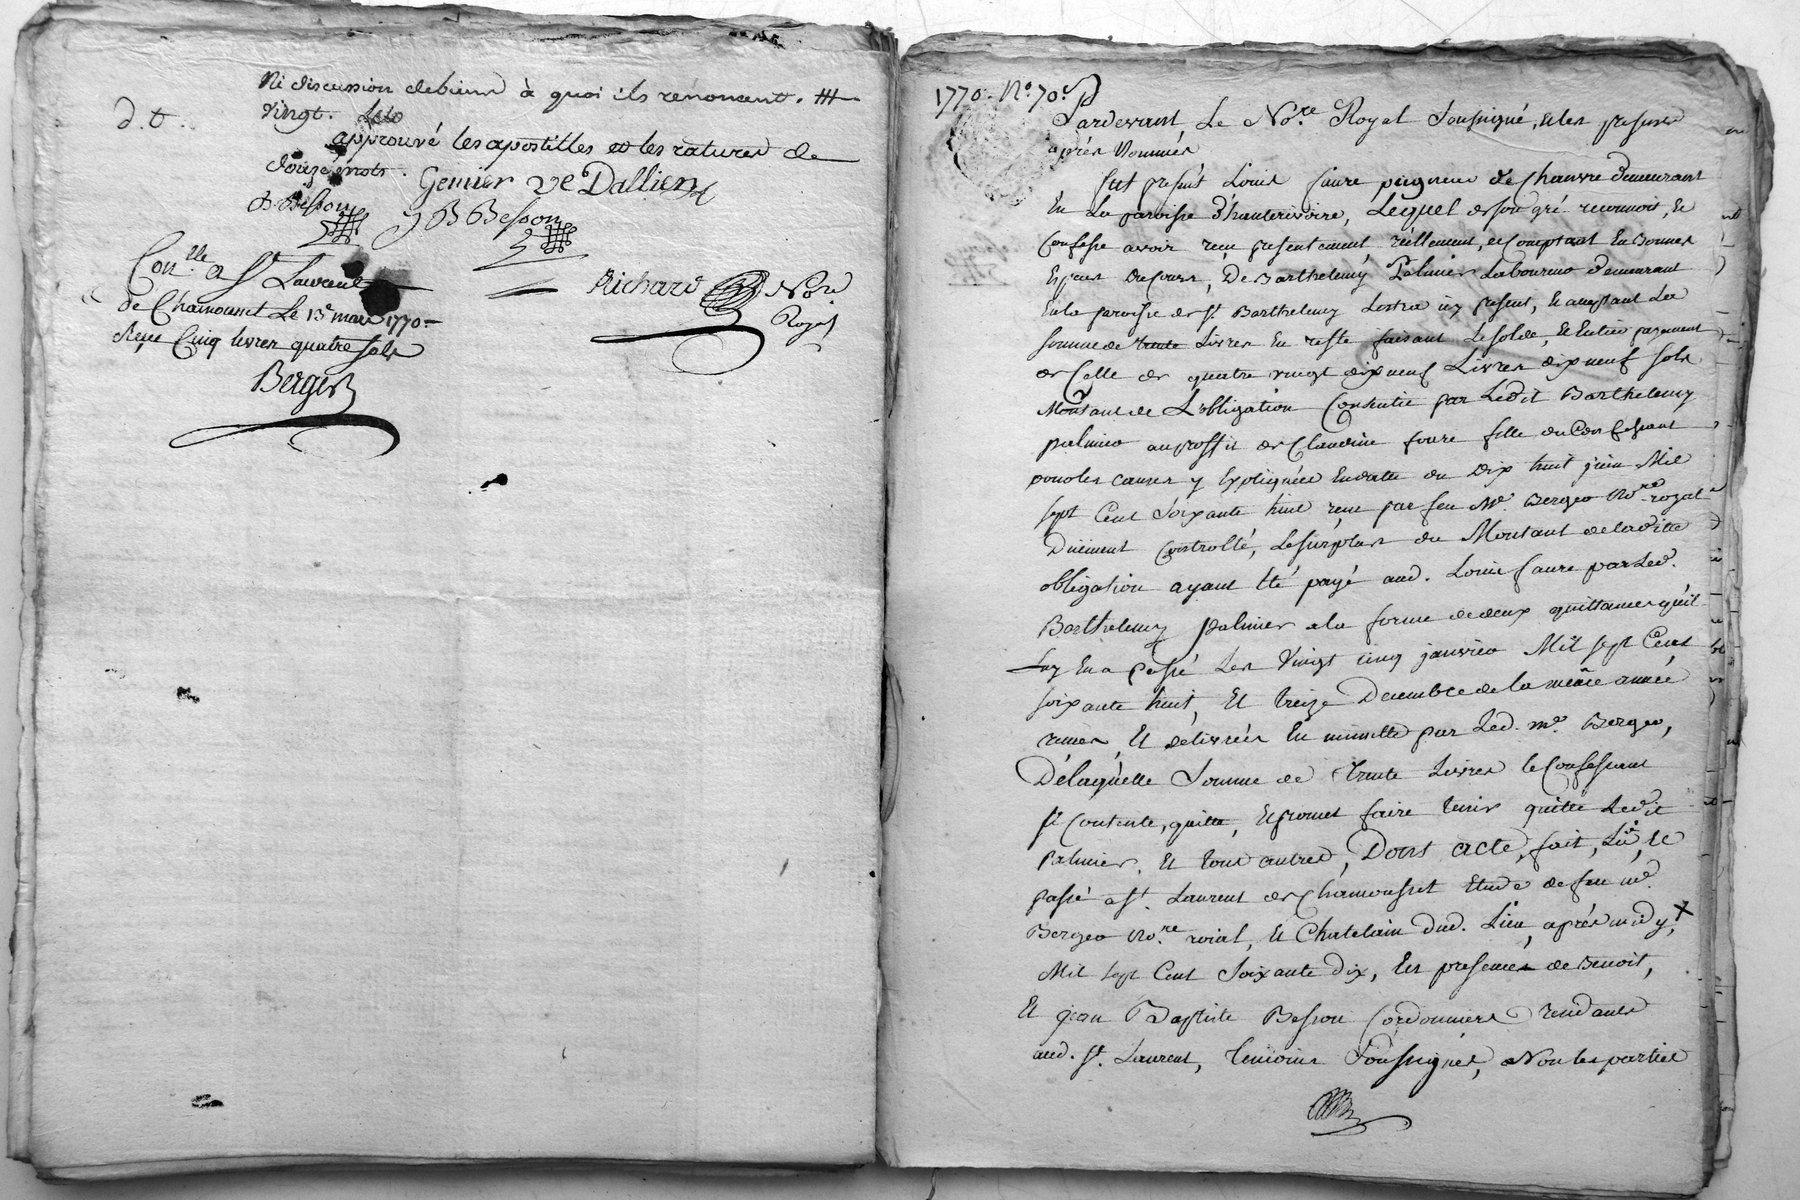 Ni discussion debiens à quoi ils renoncent.
d. t. vingt.
approuvé les apostilles et les ratures de
douze mots. Genier ve Dallien
B Besson J B Besson
Con.lle a St. Laurent
Richard Nore
Royal
de Chamousset Le 13e mars 1770
Reçu Cinq livres quatre sols
Berger
1770. No. 70.
Pardevant Le No.re Royal Soussigné, et les presens
après Nommés
fut present Louis faure peigneur de Chanvre demeurant
En La paroisse D'hauterivoire, Lequel de son gré reconnoit, Et
Confesse avoir reçu presentement réellement, et Comptant En Bonnes
Especes De Cours, De Barthelemy Palmier Laboureur demeurant
En la paroisse de St. Barthelemy Lestra icy present, Et acceptant La
somme de trente Livres En reste faisant Le solde, Et Entier payement
de Celle de quatre vingt dix neuf Livres dix neuf sols
Montant de L'obligation Consentie par Ledit Barthelemy
palmier au proffit de Claudine faure fille du Confessant
pour les causes y Expliquées En datte du Dix huit juin Mil
sept Cent Soixante huit recue par feu Me. Berger No.re royal
Duëment Controllé, Le surplus du Montant de laditte
obligation ayant Eté payé aud. Louis faure par Led.
Barthelemy palmier a la forme de deux quittances qu'il
Luy En a passé Les Vingt cinq janvier Mil sept Cent
soixante huit, Et treize Decembre de la même année
recues, Et délivrées En minutte par Led. me. Berger,
Délaquelle Somme de Trente Livres le Confessant
se Contente, quitte, Et promet faire tenir quitte Ledit
Palmier, Et tous autres, Dont acte, fait, Lû, Et
passé a St. Laurent de Chamousset Etude de feu me.
Berger No.re roial, Et Chatelain dud. Lieu, après midy, X
Mil sept Cent Soixante Dix, En presence de Benoit,
Et jean Baptiste Besson Cordonniers residants
aud. St. Laurent, temoins Soussignés, Non les parties